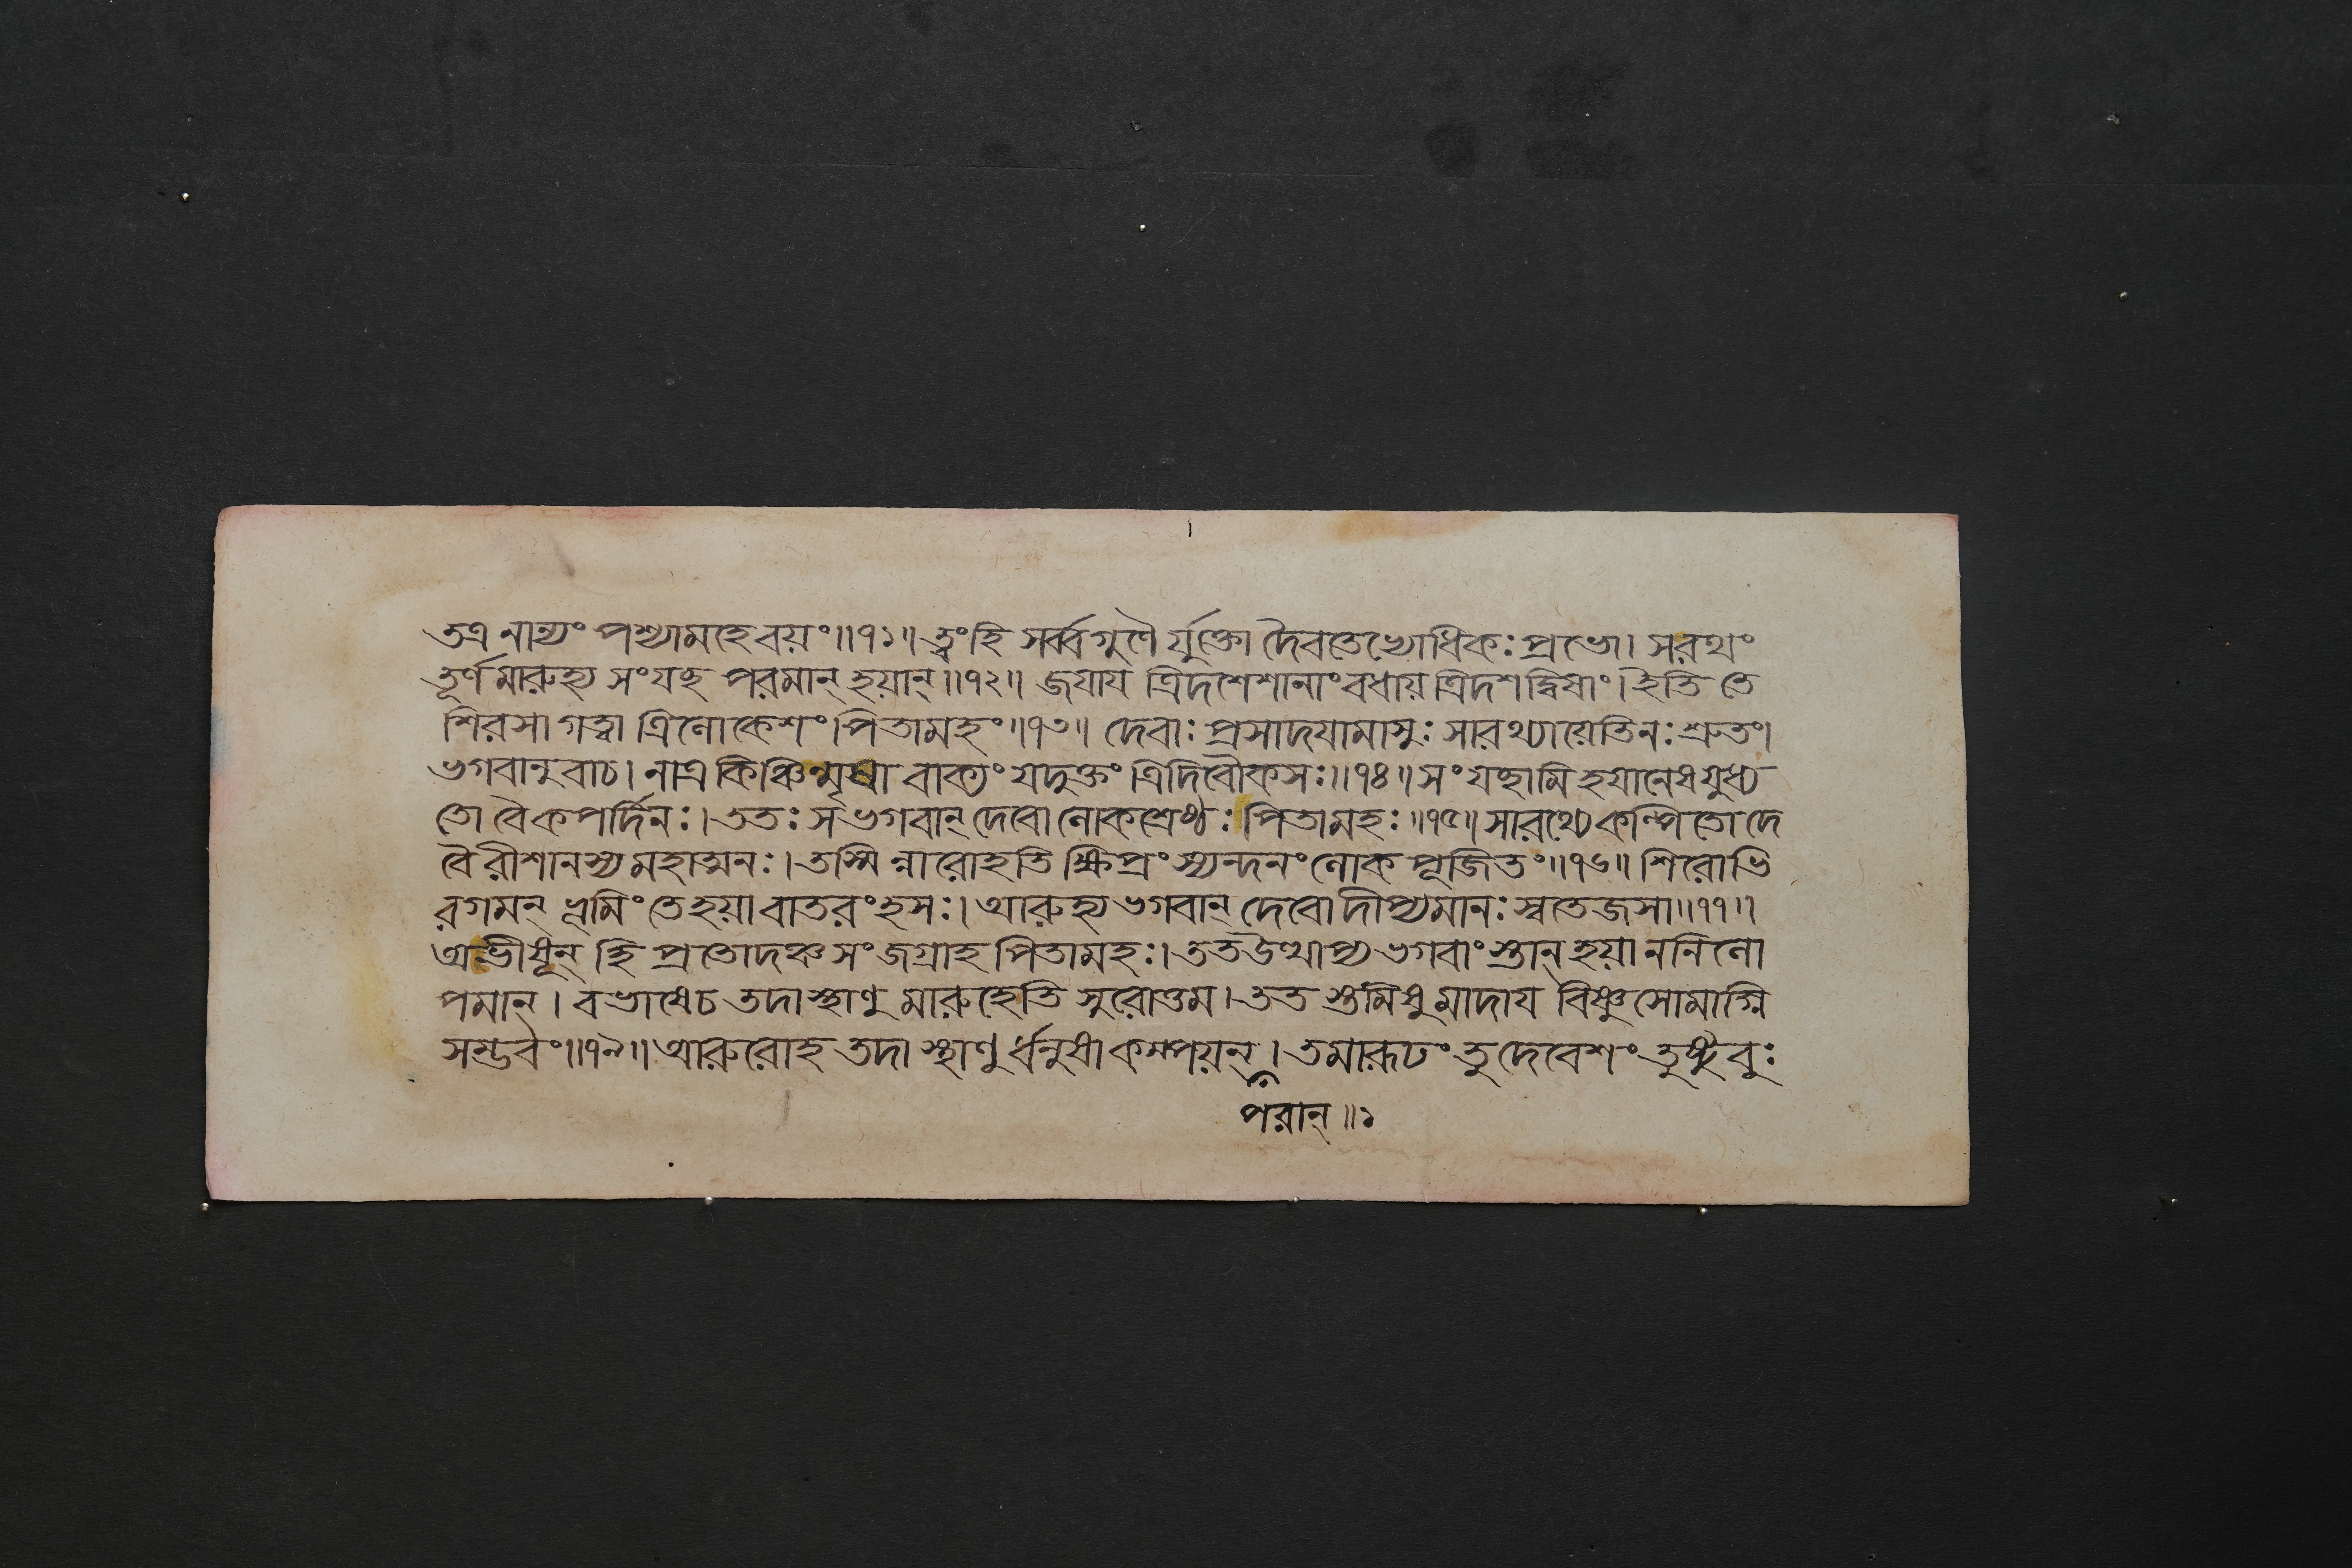 তত্র নান্যং পশ্যামহে বয়ং॥৭১॥ ত্বং হি সর্ব্বগুণৈ র্যুক্তো দৈবতেভ্যোধিকঃ প্রভো। সরথং
তূর্ণমারুহ্য সংযচ্ছ পরমান্ হয়ান্॥৭২॥ জযায ত্রিদশেশানাং বধায় ত্রিদশদ্বিষাং। ইতি তে
শিরসা গত্বা ত্রিলোকেশং পিতামহং॥৭৩॥ দেবাঃ প্রসাদযামাসুঃ সারথ্যায়েতিনঃ শ্রুতং।
ভগবানুবাচ। নাত্র কিঞ্চিন্মৃষা বাক্যং যদুক্তং ত্রিদিবৌকসঃ॥৭৪॥ সংযচ্ছামি হযানেষ যুধ্য
তো বৈ কপর্দিনঃ। ততঃ স ভগবান্ দেবো লোকশ্রেষ্ঠঃ পিতামহঃ॥৭৫॥ সারথ্যে কল্পিতো দে
বৈ রীশানস্য মহাত্মনঃ। তস্মিন্নারোহতি ক্ষিপ্রং স্যন্দনং লোকপূজিতং॥৭৬॥ শিরোভি
রগমন্ ভূমিং তে হয়া বাতরংহসঃ। আরুহ্য ভগবান্ দেবো দীপ্যমানঃ স্বতেজসা॥৭৭॥
অভীষূন্ হি প্রতোদঞ্চ সংজগ্রাহ পিতামহঃ। তত উত্থাপ্য ভগবাংস্তান্ হয়াননিলো
পমান্। বভাষে চ তদা স্থাণু মারুহেতি সুরোত্তম। তত স্তমিষুমাদায বিষ্ণুসোমাগ্নি
সম্ভবং॥৭৯॥ আরুরোহ তদা স্থাণু র্ধনুষা কম্পয়ন্। তমারূঢং তু দেবেশং তুষ্টুবুঃ
পরান্॥১